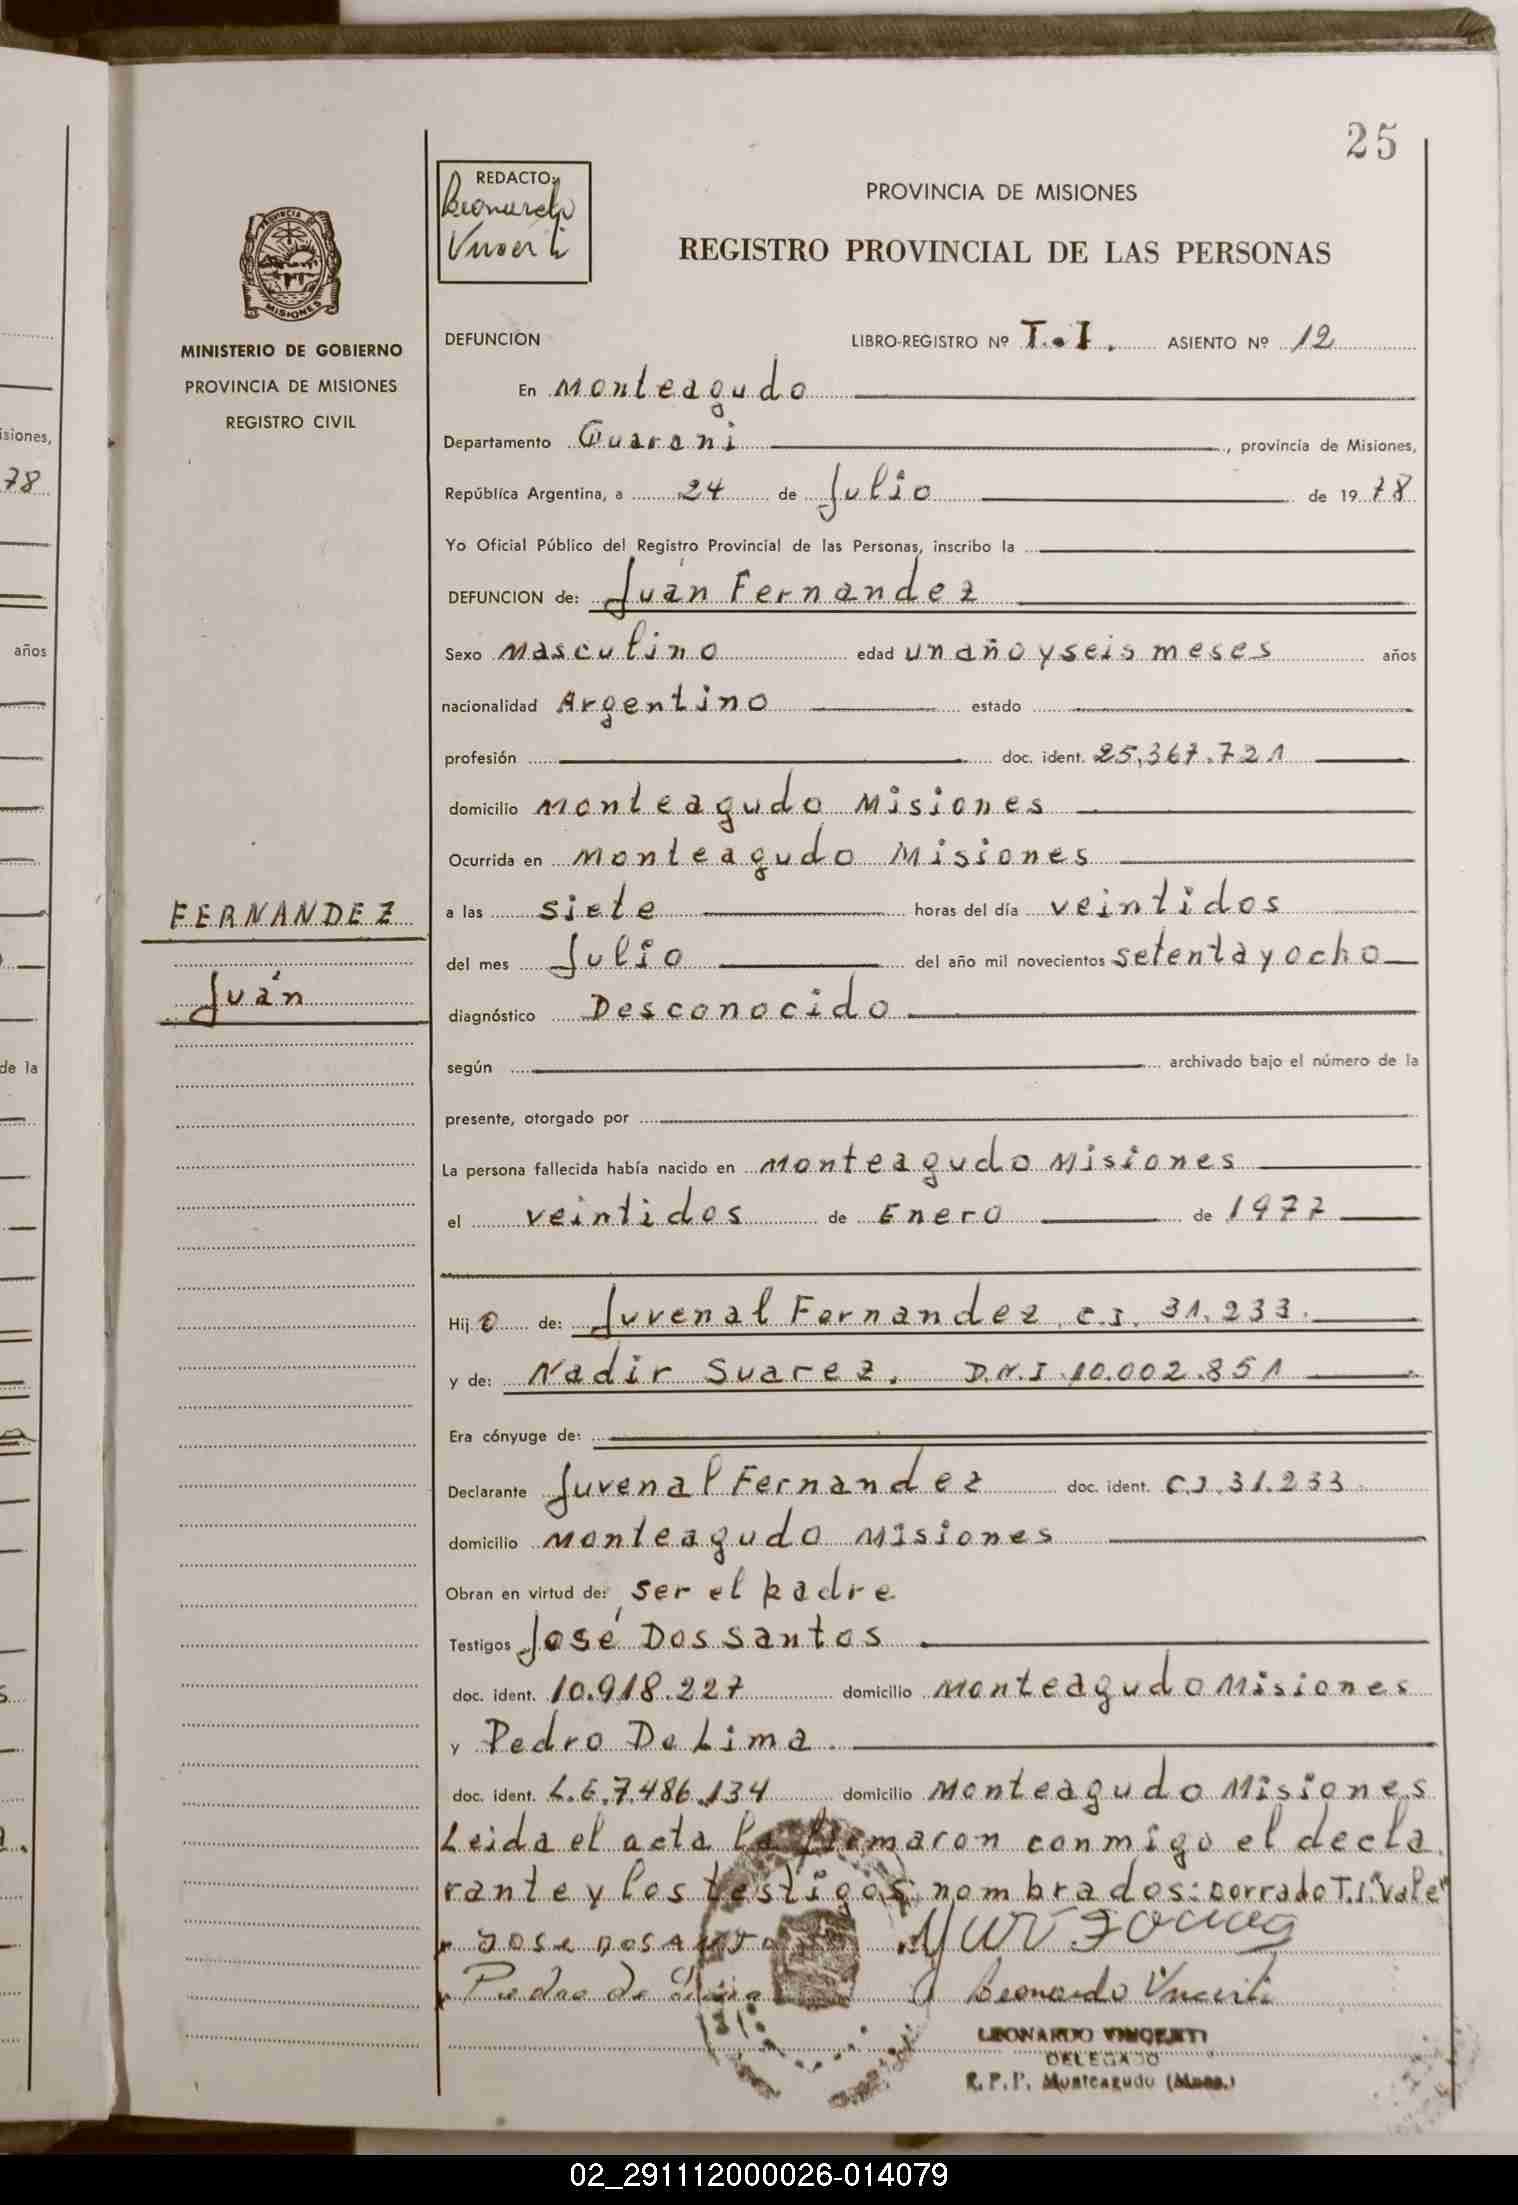 25
REDACTO:
Leonardo
Vincenti
PROVINCIA DE MISIONES
REGISTRO PROVINCIAL DE LAS PERSONAS
PROVINCIA DE
MISIONES
MINISTERIO DE GOBIERNO
PROVINCIA DE MISIONES
REGISTRO CIVIL
DEFUNCION LIBRO-REGISTRO Nº T.I. ASIENTO Nº 12
En Monteagudo
Departamento Guarani, provincia de Misiones,
República Argentina, a 24 de Julio de 1978
Yo Oficial Público del Registro Provincial de las Personas, inscribo la
DEFUNCION de: Juán Fernandez
Sexo Masculino edad un año y seis meses años
nacionalidad Argentino estado
profesión doc. ident. 25.367.721
domicilio Monteagudo Misiones
Ocurrida en Monteagudo Misiones
FERNANDEZ
Juán
a las siete horas del día veintidos
del mes Julio del año mil novecientos setenta y ocho
diagnóstico Desconocido
según archivado bajo el número de la
presente, otorgado por
La persona fallecida había nacido en Monteagudo Misiones
el veintidos de Enero de 1977
Hijo de: Juvenal Fernandez C.I. 31.233.
y de: Nadir Suarez. D.N.I 10.002.851
Era cónyuge de:
Declarante Juvenal Fernandez doc. ident. C.I. 31.233.
domicilio Monteagudo Misiones
Obran en virtud de: ser el padre
Testigos José Dos Santos
doc. ident. 10.918.227 domicilio Monteagudo Misiones
y Pedro De Lima.
doc. ident. L.E. 7.486.134 domicilio Monteagudo Misiones
Leida el acta la firmaron conmigo el decla
rante y los testigos nombrados: borrado T.I. "Vale"
JOSE DOSANTO
Pedro de Lima Leonardo Vincenti
LEONARDO VINCENTI
DELEGADO
R.P.P. Monteagudo (Mnes.)
isiones,
78
años
de la
02_291112000026-014079